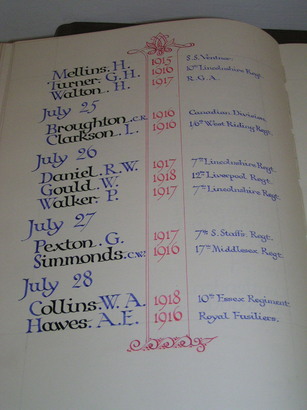 Mellins. H. 1915 S.S. Ventnor.
Turner. G.H. 1916 10th Lincolnshire Regt.
Walton. H. 1917 R.G.A.
July 25
Broughton. C.R. 1916 Canadian Division.
Clarkson. L. 1916 16th West Riding Regt.
July 26
Daniel. R.W. 1917 7th Lincolnshire Regt.
Gould. W. 1918 12th Liverpool Regt.
Walker. P. 1917 7th Lincolnshire Regt.
July 27
Pexton. G. 1917 7th S. Staffs. Regt.
Simmonds. C.W. 1916 17th Middlesex Regt.
July 28
Collins. W. A. 1918 10th Essex Regiment
Hawes. A.E. 1916 Royal Fusiliers.